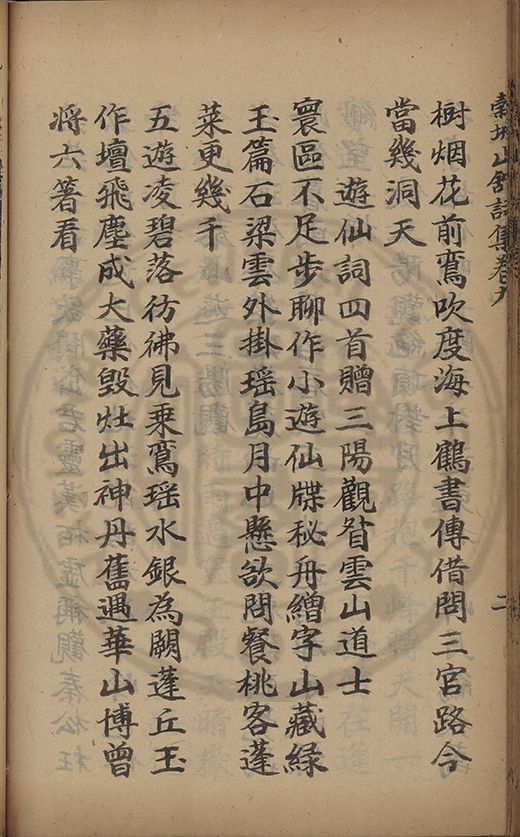 樹烟花前鸞吹度海上鶴書傳借問三官路今
當幾洞天
遊仙詞四首贈三陽觀昝雲山道士
寰區不足步聊作小遊仙牒秘舟繒字山藏緑
玉篇石梁雲外掛瑶島月中懸欲問餐桃客蓬
萊更幾千
五遊凌碧落彷彿見乗鸞瑶水銀為闕蓬丘玉
作壇飛塵成大藥毁灶出神丹舊遇華山博曽
将六箸看
山舘詩集卷九
二